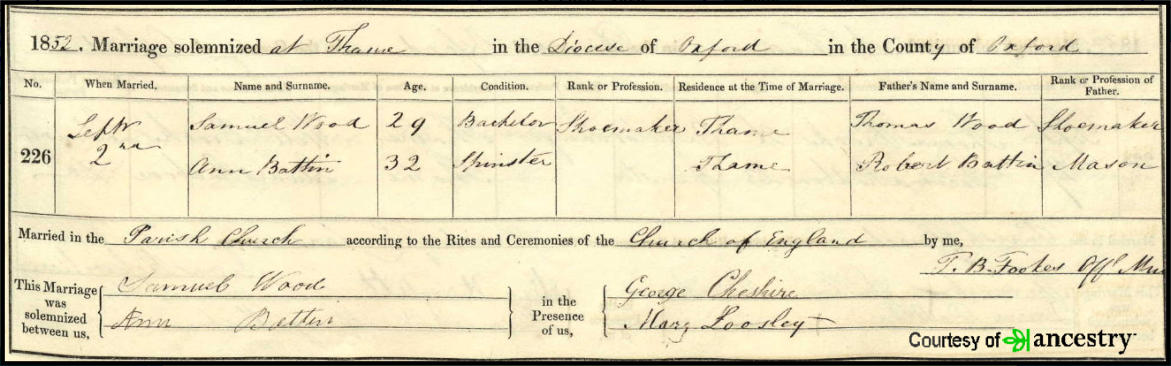 1852. Marriage solemnized at Thame in the Diocese of Oxford in the County of Oxford
No. When Married. Name and Surname. Age. Condition. Rank or Profession. Residence at the Time of Marriage. Father's Name and Surname. Rank or Profession of Father.
226 Septr 2nd Samuel Wood 29 Bachelor Shoemaker Thame Thomas Wood Shoemaker
Ann Battin 32 Spinster Thame Robert Battin Mason
Married in the Parish Church according to the Rites and Ceremonies of the Church of England by me,
T. B. Fookes Off Min
This Marriage was solemnized between us, Samuel Wood in the Presence of us, George Cheshire
Ann Battin Mary Loosley +
Courtesy of ancestry